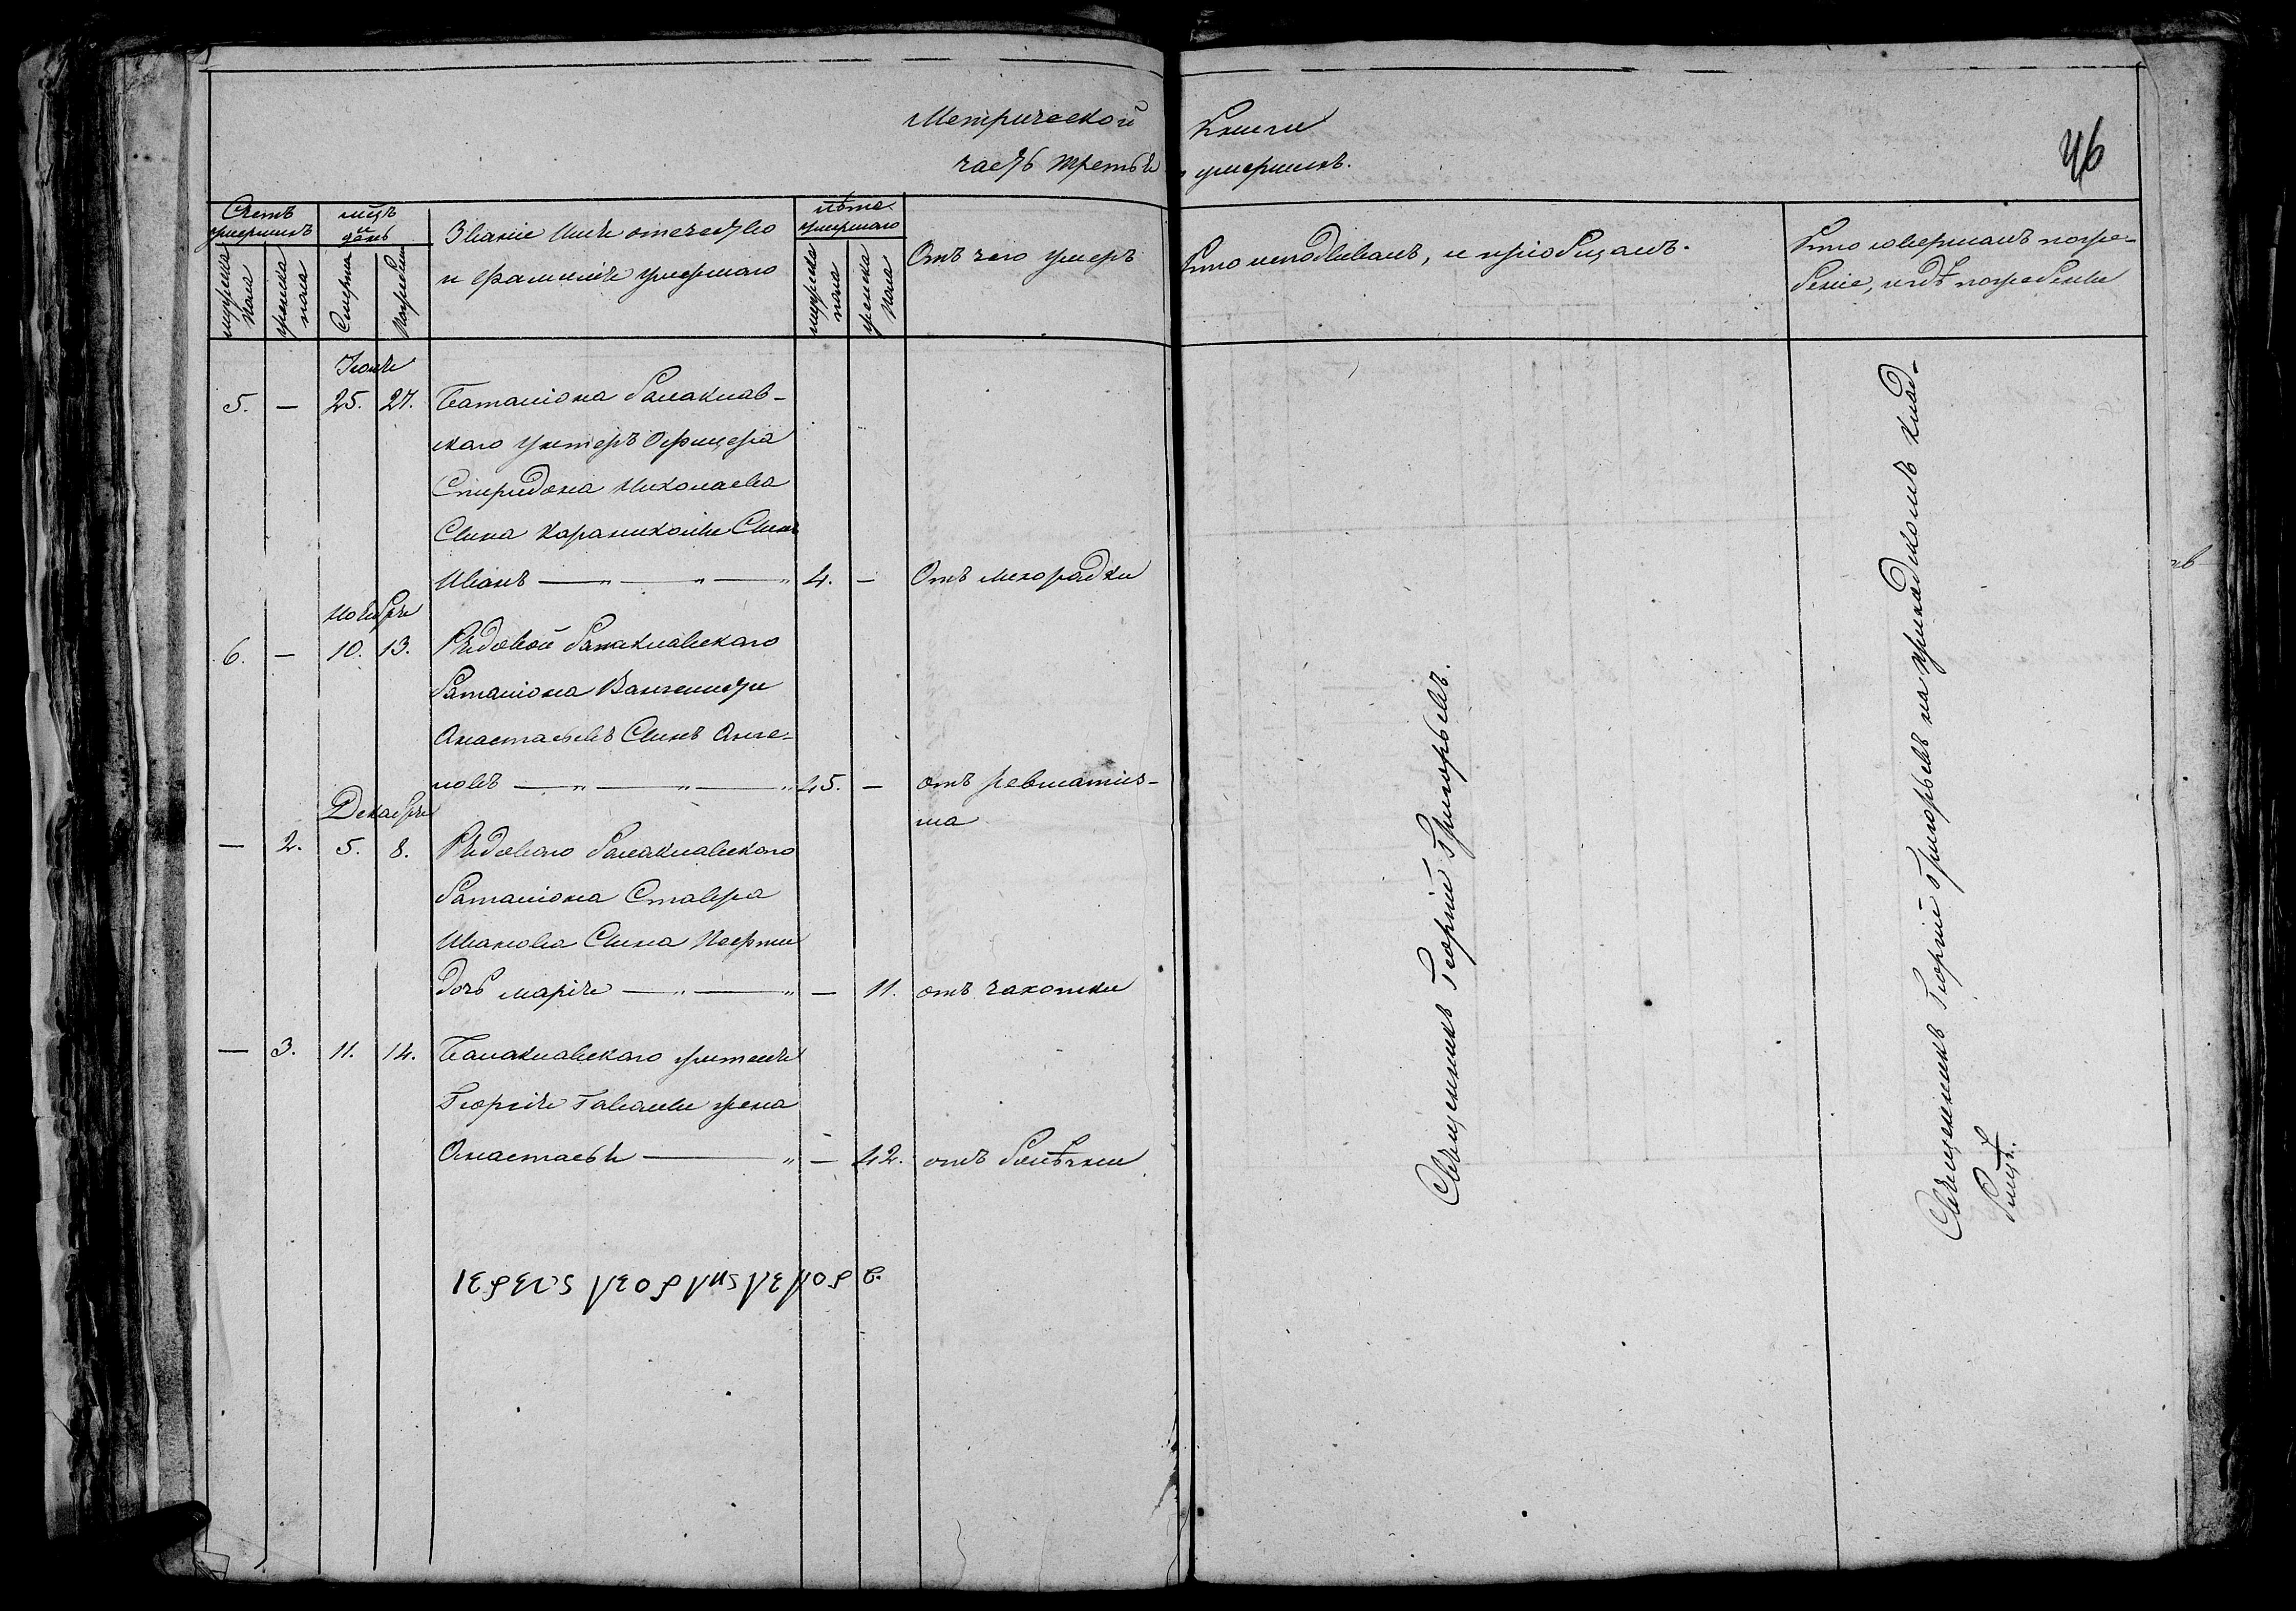 Метрической Книги
часть третья о умершихъ.
46
Счетъ
умершихъ
мцъ
и
день
Званіе Имя отечество
и фамилія умершаго
лѣта
умершаго
Отъ чего умеръ
Кто исподвивалъ, и пріобщалъ.
Кто совершалъ погре-
беніе, и гдѣ погребены
мужеска
пола
женска
пола
Смерти
погребенія
мужеска
пола
женска
пола
Іюня
5. — 25. 27. Баталіона Балаклав-
скаго унтеръ Офицера
Спиридона Николаева
Сына Караниколы Сынъ
Иванъ — „ — „ — „ 4. — Отъ лихорадки
Ноября
6. — 10. 13. Рядовой Балаклавскаго
баталіона
Анастасьевъ Сынъ Анге-
ловъ — „ — „ — „ 45. — отъ ревматиз-
ма
Декабря
— 2. 5. 8. Рядоваго Балаклавскаго
баталіона Ставра
Иванова Сына
дочь марія — „ — „ — 11. отъ чахотки
— 3. 11. 14. Балаклавскаго жителя
Георгія жена
Анастасья — „ — 42. отъ горячки
ιερευς γεοργιις
Священникъ Георгій Григорьевъ.
Священникъ Георгій Григорьевъ на приходскомъ клад-
бищѣ.